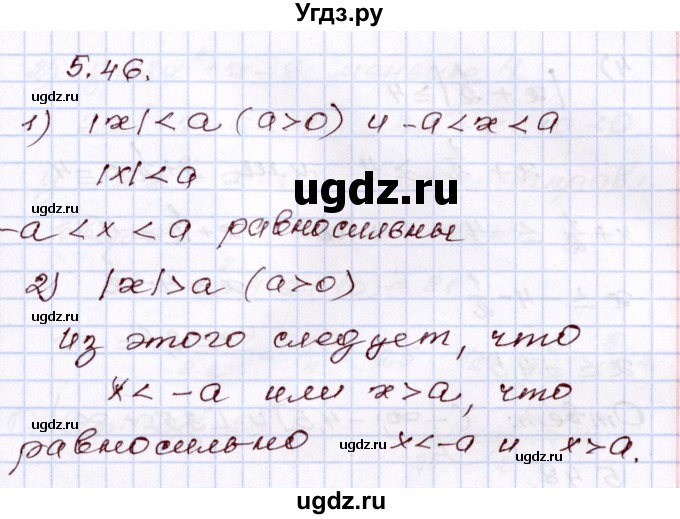 Угдз.ру
5.46.
ugdz.ru ugdz.ru
1) |x| < a (a>0) и -a<x<a
|x| < a
ugdz.ru ugdz.ru
ugdz.ru
-a < x < a равносильны
2) |x|>a (a>0)
ugdz.ru ugdz.ru
Из этого следует, что
x < -a или x>a, что
ugdz.ru ugdz.ru
равносильно x<-a и x>a.
ugdz.ru ugdz.ru
ugdz.ru